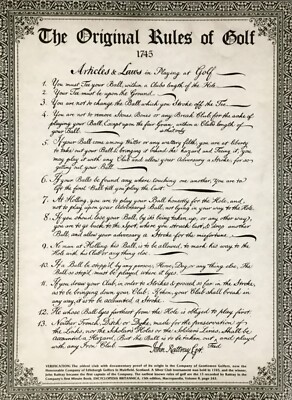 The Original Rules of Golf
1745
Articles & Laws in Playing at Golf
1 — You must Tee your Ball, within a Clubs length of the Hole
2 — Your Tee must be upon the Ground
3 — You are not to change the Ball which you Stroke off the Tee
4 — You are not to remove Stones Bones or any Break Club for the sake of
playing your Ball, Except upon the fair Green, & within a Club's length of
your Ball.
5 — If your Ball come among Water or any watery filth, you are at liberty
to take out your Ball & bringing it behind the hazard and Teeing it, you
may play it with any Club and allow your Adversary a Stroke, for so
getting out your Ball
6 — If your Balls be found any where touching one another, You are to
lift the first Ball till you play the last
7 — At Holling, you are to play your Ball honestly for the Hole, and
not to play upon your Adversary's Ball, not lying in your way to the Hole.
8 — If you should lose your Ball, by its being taken up, or any other way,
you are to go back to the Spot, where you struck last, & drop another
Ball, and allow your adversary a Stroke for the misfortune
9 — No man at Holling his Ball, is to be allowed, to mark his way to the
Hole with his Club or any thing else
10 — If a Ball be stopp'd by any person, Horse, Dog or any thing else, The
Ball so stop'd must be played where it lyes
11 — If you draw your Club, in order to Stroke & proceed so far in the Stroke,
as to be bringing down your Club; If then, your Club shall break in
any way, it is to be accounted a Stroke
12 — He whose Ball lyes farthest from the Hole is obliged to play first
13 — Neither Trench, Ditch or Dyke, made for the preservation of
the Links, nor the Scholars' Holes or the Soldiers Lines, Shall be
accounted a Hazard, But the Ball is to be taken out, and played
with any Iron Club
John Rattray Cpt